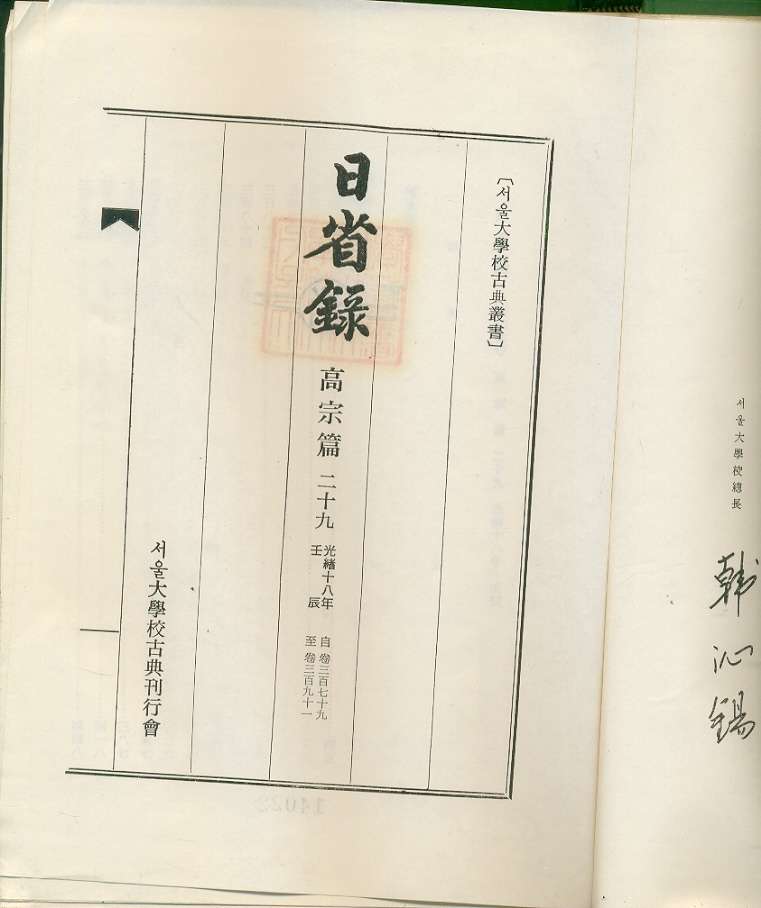 서울大學校總長
韓沁錫
〔서울大學校古典叢書〕
日省錄 高宗篇 二十九
光緖十八年
壬辰
自 卷三百七十九
至 卷三百九十一
서울大學校古典刊行會